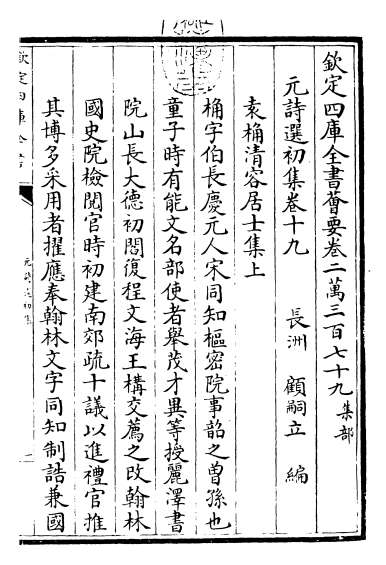 欽定四庫全書薈要卷二萬三百七十九 集部
元詩選初集卷十九
長洲 顧嗣立 編
袁桷清容居士集上
桷字伯長慶元人宋同知樞密院事韶之曽孫也
童子時有能文名部使者舉茂才異等授麗澤書
院山長大德初閻復程文海王構交薦之改翰林
國史院檢閱官時初建南郊疏十議以進禮官推
其博多采用者擢應奉翰林文字同知制誥兼國
欽定四庫全書
元詩選初集